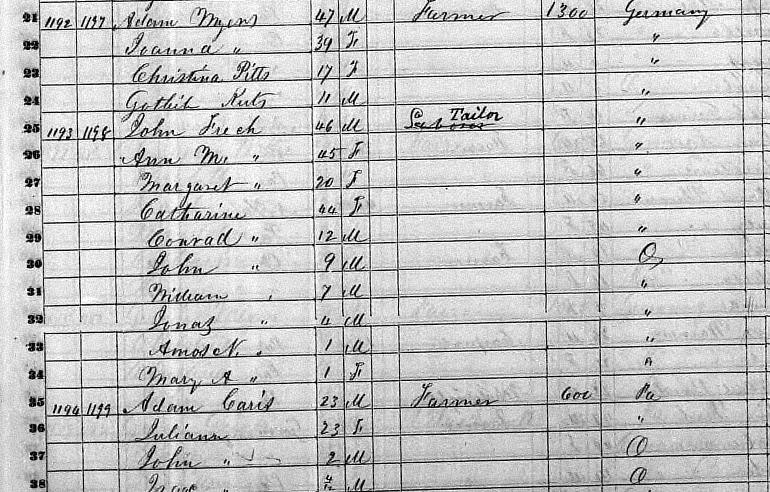 21 1192 1197 Adam Myers 47 M Farmer 1300 Germany
22 Joanna " 39 F "
23 Christina Pitts 17 F "
24 Gotlieb Kuts 11 M "
25 1193 1198 John Frech 46 M Tailor "
26 Ann M. " 45 F "
27 Margaret " 20 F "
28 Catharine 44 F "
29 Conrad " 12 M "
30 John " 9 M O
31 William " 7 M "
32 Jonas " 4 M "
33 Amos N. " 1 M "
34 Mary A " 1 F "
35 1194 1199 Adam Caris 23 M Farmer 600 Pa
36 Juliann 23 F "
37 John " 2 M O
38 Isaac " 4/12 M O